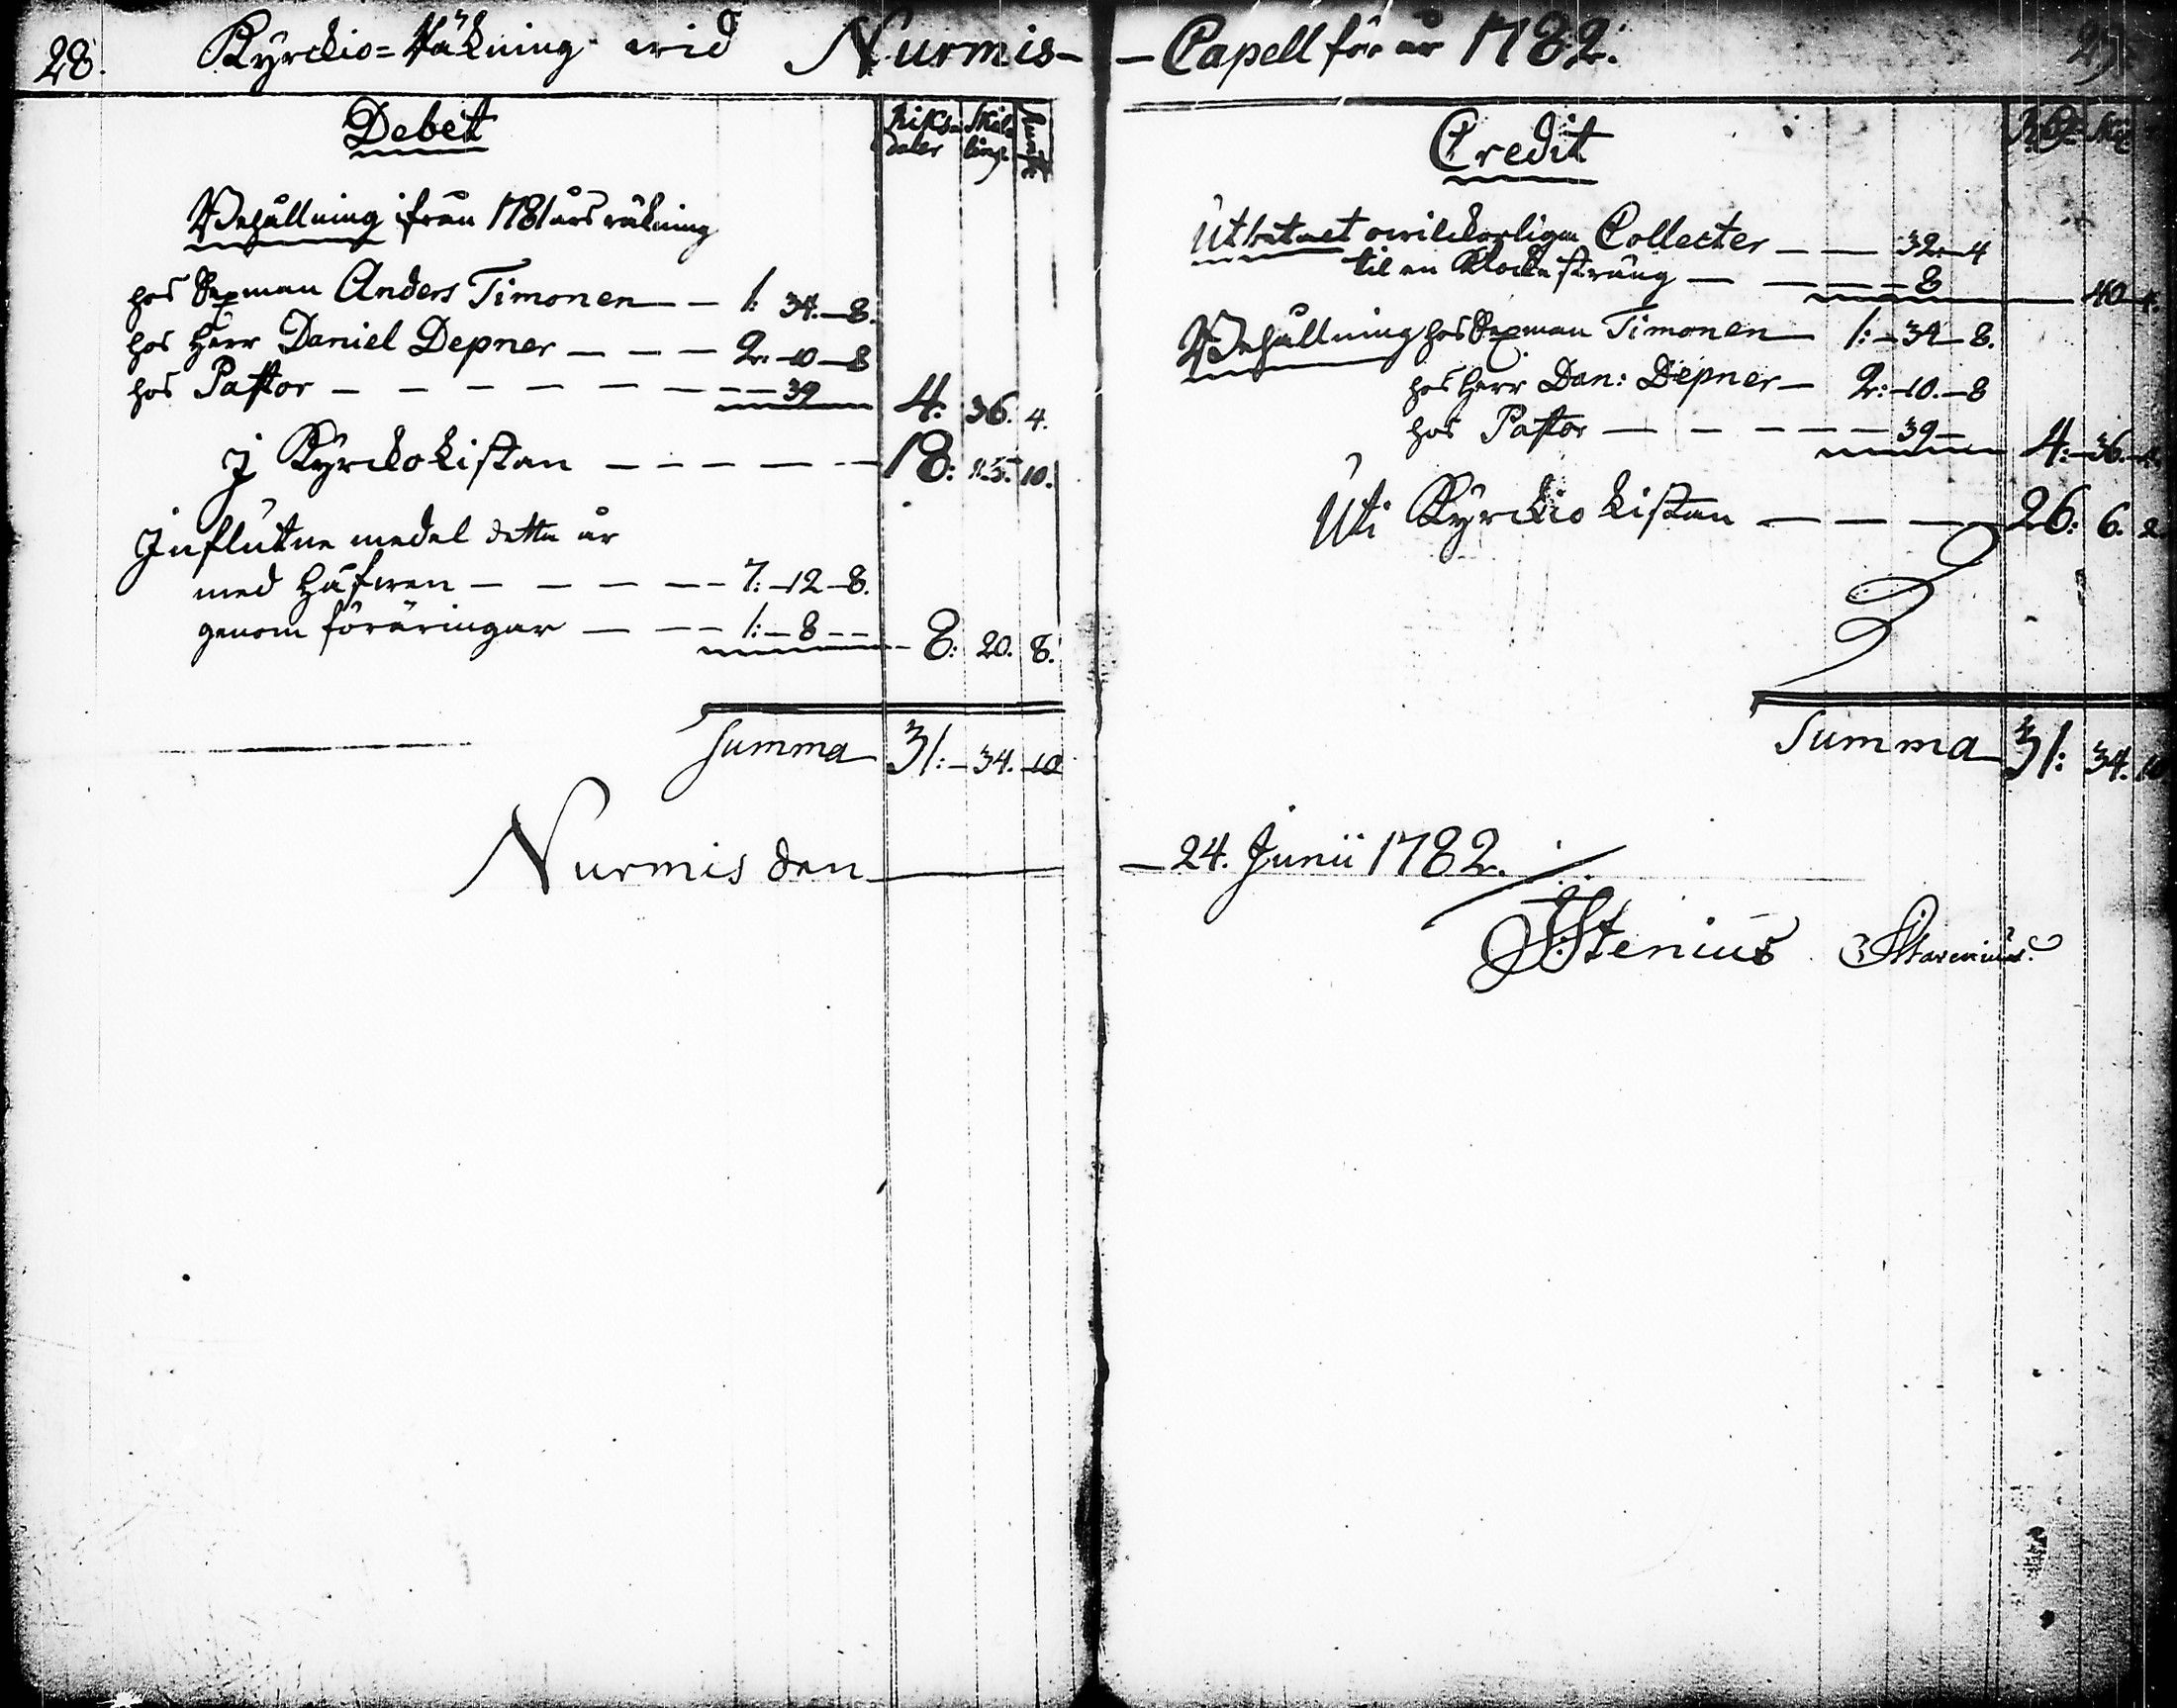 28. Kyrckio=Räkning wid Nurmis-
Debet
Riks-daler Skilling. Runst.
Behållning ifrån 1781 års räkning
hos Sexman Anders Timonen — — 1: 34.—8.
hos Herr Daniel Depner — — — 2:—10—8
hos Pastor — — — — — — — 39 4: 36. 4.
J Kyrckokistan — — — — — 18: 25. 10.
Influtne medel detta år
med Håfwen — — — — — 7:—12—8.
genom föräringar — — — 1:—8— — 8: 20. 8.
Summa 31:—34.—10
Nurmis den
—Capell för år 1782.
29.
Credit
R.D. Skil
Utbetaet owilckorliga Collecter — — 32—4
til en Klocke sträng — — — — 8 40 4.
Behållning hos Sexman Timonen — 1:—34—8.
hos Herr Dan: Depner — 2:—10.—8
hos Pastor — — — — — 39— 4:—36.—4.
Uti Kyrckio Kistan — — — — 26: 6. 2.
Summa 31: 34. 10
—24. Junii 1782.
JStenius